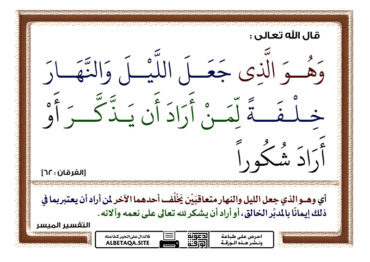 قال الله تعالى :
وَهُـوَ الَّذِى جَعَلَ اللَّيْلَ وَالنَّهَارَ
خِلْفَةً لِّمَنْ أَرَادَ أَن يَذَّكَّرَ أَوْ
أَرَادَ شُكُوراً
[الفرقان : ٦٢]
أي وهو الذي جعل الليل والنهار متعاقبَيْن يَخْلُف أحدهما الآخر لمن أراد أن يعتبر بما في
ذلك إيمانًا بالمدبِّر الخالق، أو أراد أن يشكر لله تعالى على نعمه وآلائه .
التفسير الميسر
احرص على طباعة
ونشر هذه الورقة
فالدال على الخير كفاعله
ALBETAQA.SITE